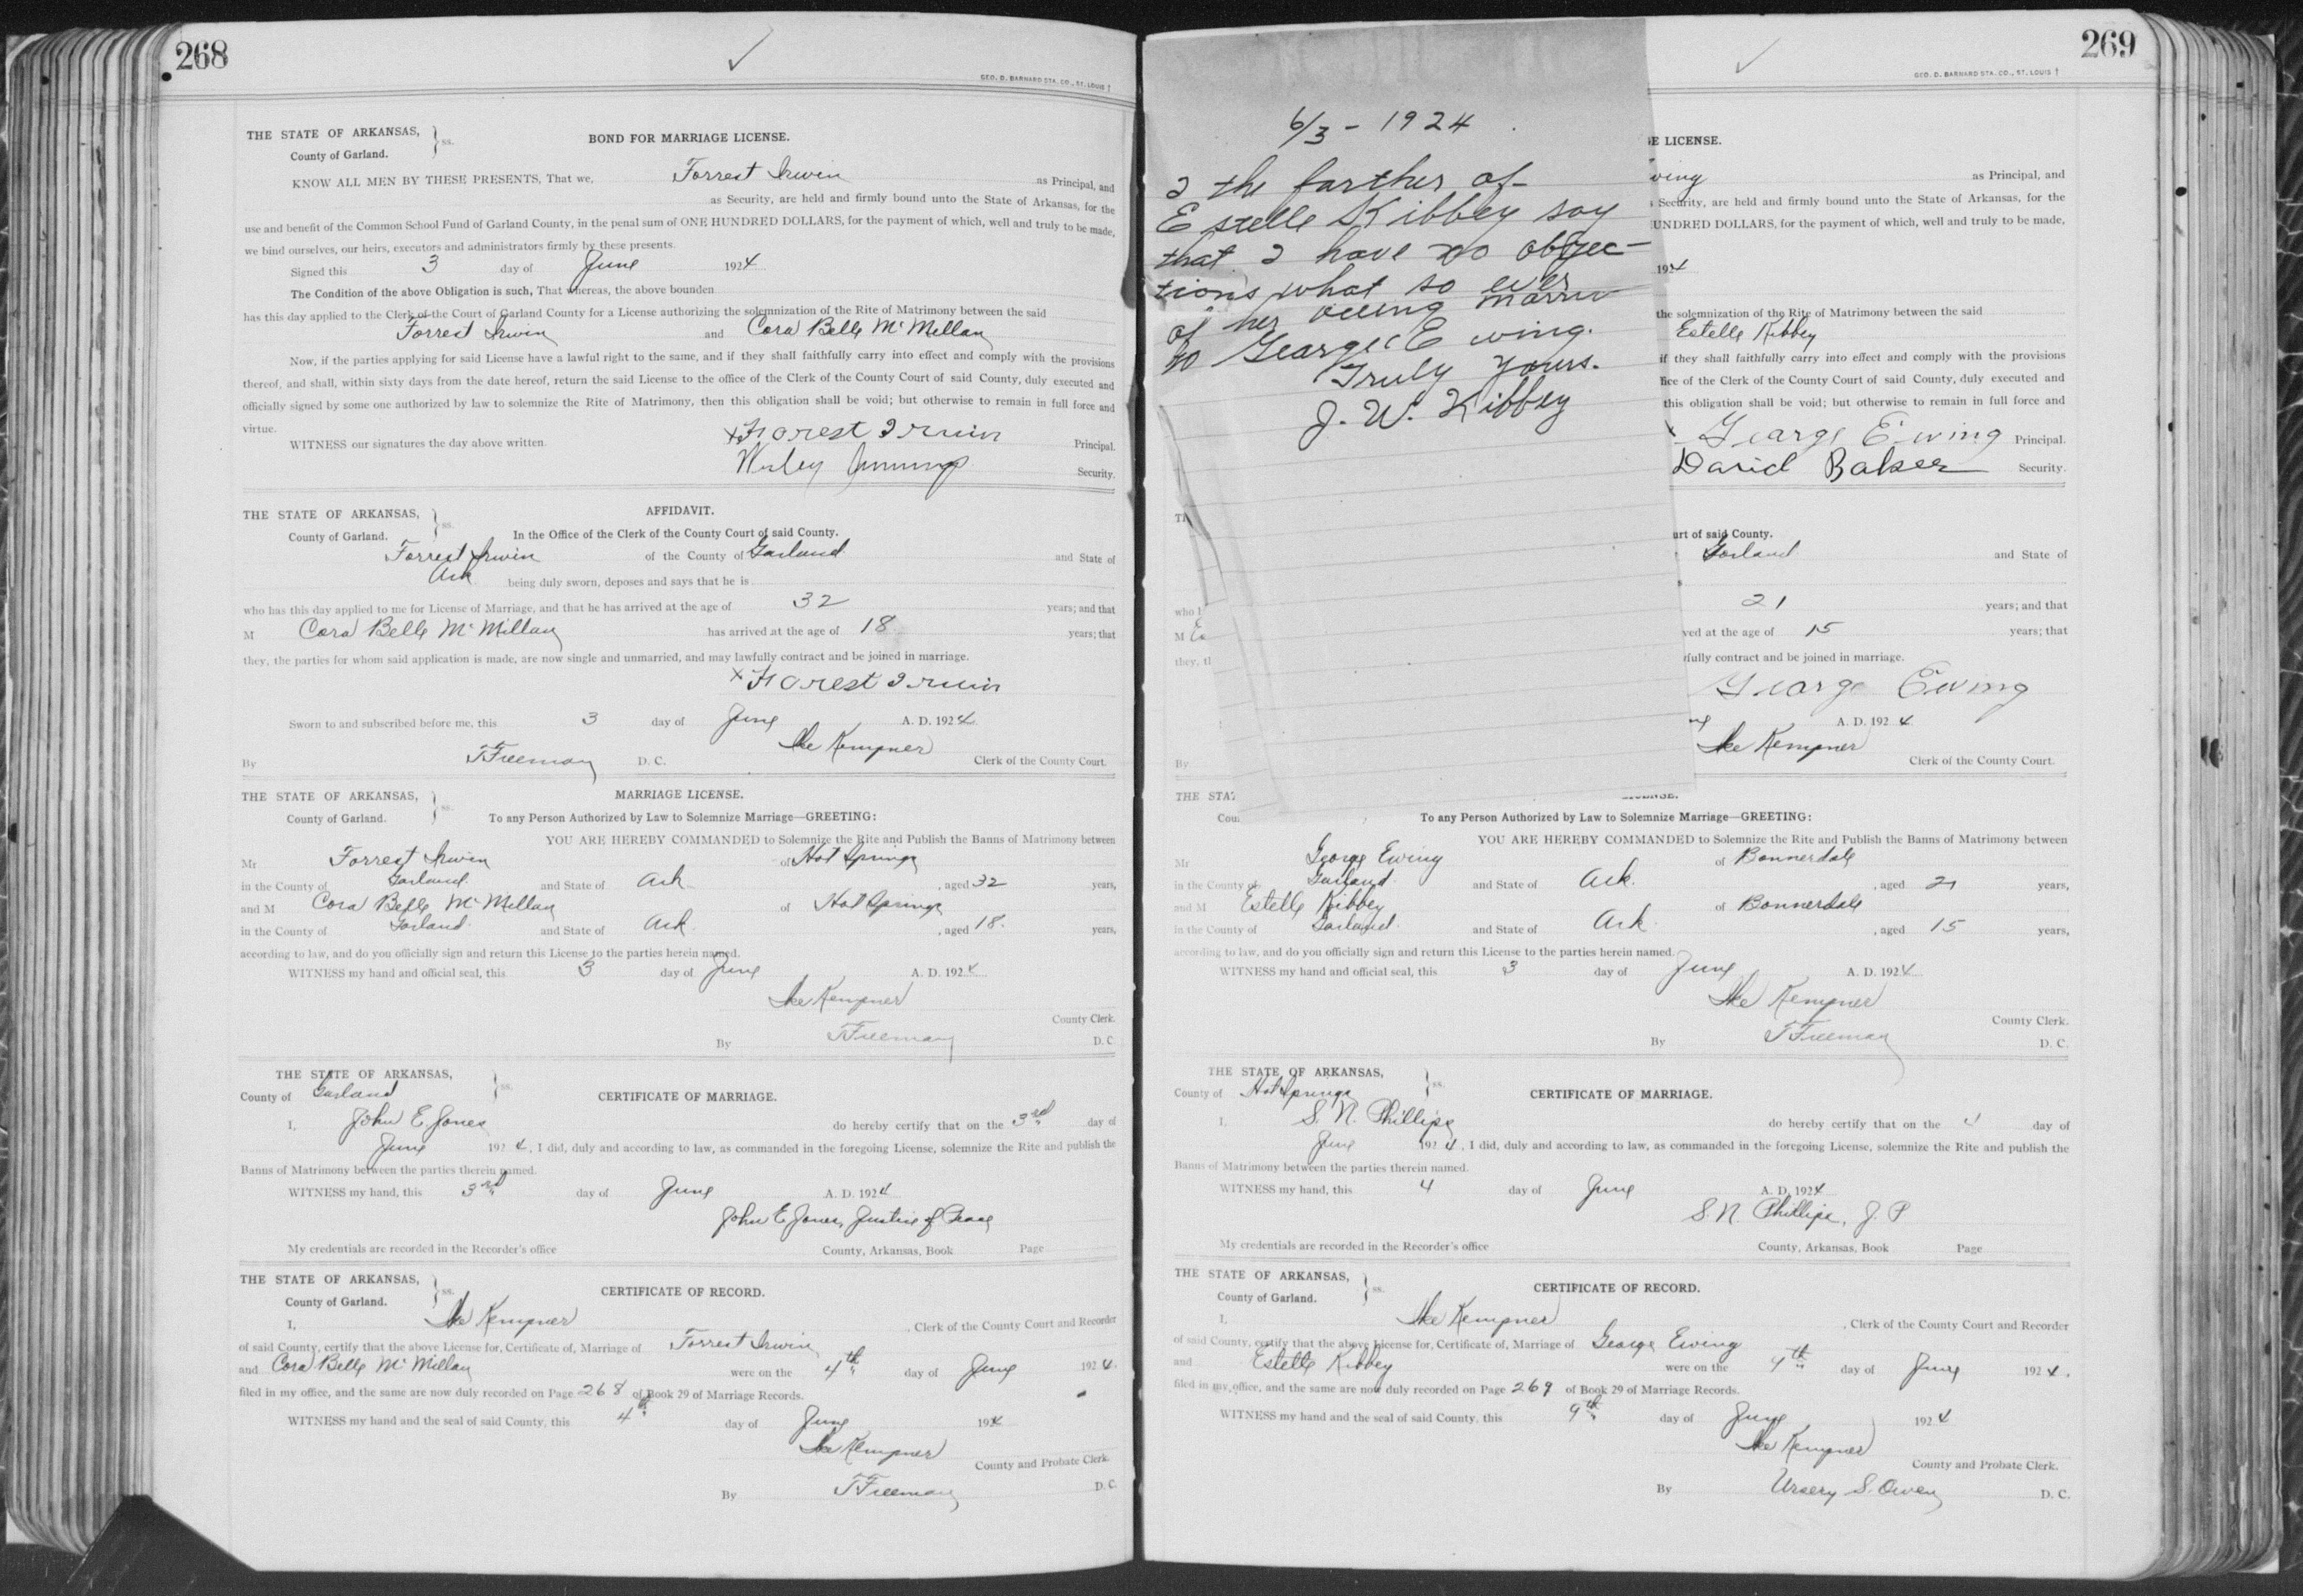 268
GEO. D. BARNARD STA. CO., ST. LOUIS
THE STATE OF ARKANSAS,
County of Garland.
ss.
BOND FOR MARRIAGE LICENSE.
KNOW ALL MEN BY THESE PRESENTS, That we, Forrest Irwin as Principal, and
as Security, are held and firmly bound unto the State of Arkansas, for the
use and benefit of the Common School Fund of Garland County, in the penal sum of ONE HUNDRED DOLLARS, for the payment of which, well and truly to be made,
we bind ourselves, our heirs, executors and administrators firmly by these presents.
Signed this 3 day of June 1924
The Condition of the above Obligation is such, That whereas, the above bounden
has this day applied to the Clerk of the Court of Garland County for a License authorizing the solemnization of the Rite of Matrimony between the said
Forrest Irwin and Cora Belle McMillan
Now, if the parties applying for said License have a lawful right to the same, and if they shall faithfully carry into effect and comply with the provisions
thereof, and shall, within sixty days from the date hereof, return the said License to the office of the Clerk of the County Court of said County, duly executed and
officially signed by some one authorized by law to solemnize the Rite of Matrimony, then this obligation shall be void; but otherwise to remain in full force and
virtue.
WITNESS our signatures the day above written.
x Forest Irwin Principal.
Wesley Jennings Security.
THE STATE OF ARKANSAS,
County of Garland.
ss.
AFFIDAVIT.
In the Office of the Clerk of the County Court of said County.
Forrest Irwin of the County of Garland and State of
Ark being duly sworn, deposes and says that he is
who has this day applied to me for License of Marriage, and that he has arrived at the age of 32 years; and that
M Cora Belle McMillan has arrived at the age of 18 years; that
they, the parties for whom said application is made, are now single and unmarried, and may lawfully contract and be joined in marriage.
x Forest Irwin
Sworn to and subscribed before me, this 3 day of June A. D. 1924
Ike Kempner Clerk of the County Court.
By T Freeman D. C.
THE STATE OF ARKANSAS,
County of Garland.
ss.
MARRIAGE LICENSE.
To any Person Authorized by Law to Solemnize Marriage—GREETING:
YOU ARE HEREBY COMMANDED to Solemnize the Rite and Publish the Banns of Matrimony between
Mr Forrest Irwin of Hot Springs
in the County of Garland and State of Ark , aged 32 years,
and M Cora Belle McMillan of Hot Springs
in the County of Garland and State of Ark , aged 18 years,
according to law, and do you officially sign and return this License to the parties herein named.
WITNESS my hand and official seal, this 3 day of June A. D. 1924
Ike Kempner
County Clerk.
By T Freeman D. C.
THE STATE OF ARKANSAS,
County of Garland
ss.
CERTIFICATE OF MARRIAGE.
I, John E. Jones do hereby certify that on the 3rd day of
June 1924, I did, duly and according to law, as commanded in the foregoing License, solemnize the Rite and publish the
Banns of Matrimony between the parties therein named.
WITNESS my hand, this 3rd day of June A. D. 1924
John E Jones, Justice of Peace
My credentials are recorded in the Recorder's office County, Arkansas, Book Page
THE STATE OF ARKANSAS,
County of Garland.
ss.
CERTIFICATE OF RECORD.
I, Ike Kempner , Clerk of the County Court and Recorder
of said County, certify that the above License for, Certificate of, Marriage of Forrest Irwin
and Cora Belle McMillan were on the 4th day of June 1924.
filed in my office, and the same are now duly recorded on Page 268 of Book 29 of Marriage Records.
WITNESS my hand and the seal of said County, this 4th day of June 1924
Ike Kempner
County and Probate Clerk.
By T Freeman D. C.
269
GEO. D. BARNARD STA. CO., ST. LOUIS
6/3 - 1924
I the farther of
Estelle Kibbey say
that I have no objec-
tions what so ever
of her
to George Ewing.
Truly yours.
J. W. Kibbey
E LICENSE.
wing as Principal, and
Security, are held and firmly bound unto the State of Arkansas, for the
UNDRED DOLLARS, for the payment of which, well and truly to be made,
1924
the solemnization of the Rite of Matrimony between the said
Estelle Kibbey
if they shall faithfully carry into effect and comply with the provisions
fice of the Clerk of the County Court of said County, duly executed and
this obligation shall be void; but otherwise to remain in full force and
George Ewing Principal.
David Baker Security.
urt of said County.
Garland and State of
who 21 years; and that
M ved at the age of 15 years; that
they, fully contract and be joined in marriage.
George Ewing
A. D. 1924
Ike Kempner
By Clerk of the County Court.
THE STA
Cou
To any Person Authorized by Law to Solemnize Marriage—GREETING:
YOU ARE HEREBY COMMANDED to Solemnize the Rite and Publish the Banns of Matrimony between
Mr George Ewing of Bonnerdale
in the County of Garland and State of Ark. , aged 21 years,
and M Estelle Kibbey of Bonnerdale
in the County of Garland and State of Ark , aged 15 years,
according to law, and do you officially sign and return this License to the parties herein named.
WITNESS my hand and official seal, this 3 day of June A. D. 1924
Ike Kempner
County Clerk.
By T Freeman D. C.
THE STATE OF ARKANSAS,
County of Hot Springs
ss.
CERTIFICATE OF MARRIAGE.
I, S. N. Phillips do hereby certify that on the 4 day of
June 1924, I did, duly and according to law, as commanded in the foregoing License, solemnize the Rite and publish the
Banns of Matrimony between the parties therein named.
WITNESS my hand, this 4 day of June A. D. 1924
S. N. Phillips, J. P
My credentials are recorded in the Recorder's office County, Arkansas, Book Page
THE STATE OF ARKANSAS,
County of Garland.
ss.
CERTIFICATE OF RECORD.
I, Ike Kempner , Clerk of the County Court and Recorder
of said County, certify that the above License for, Certificate of, Marriage of George Ewing
and Estelle Kibbey were on the 9th day of June 1924.
filed in my office, and the same are now duly recorded on Page 269 of Book 29 of Marriage Records.
WITNESS my hand and the seal of said County, this 9th day of June 1924
Ike Kempner
County and Probate Clerk.
By Ursery S. Owen D. C.